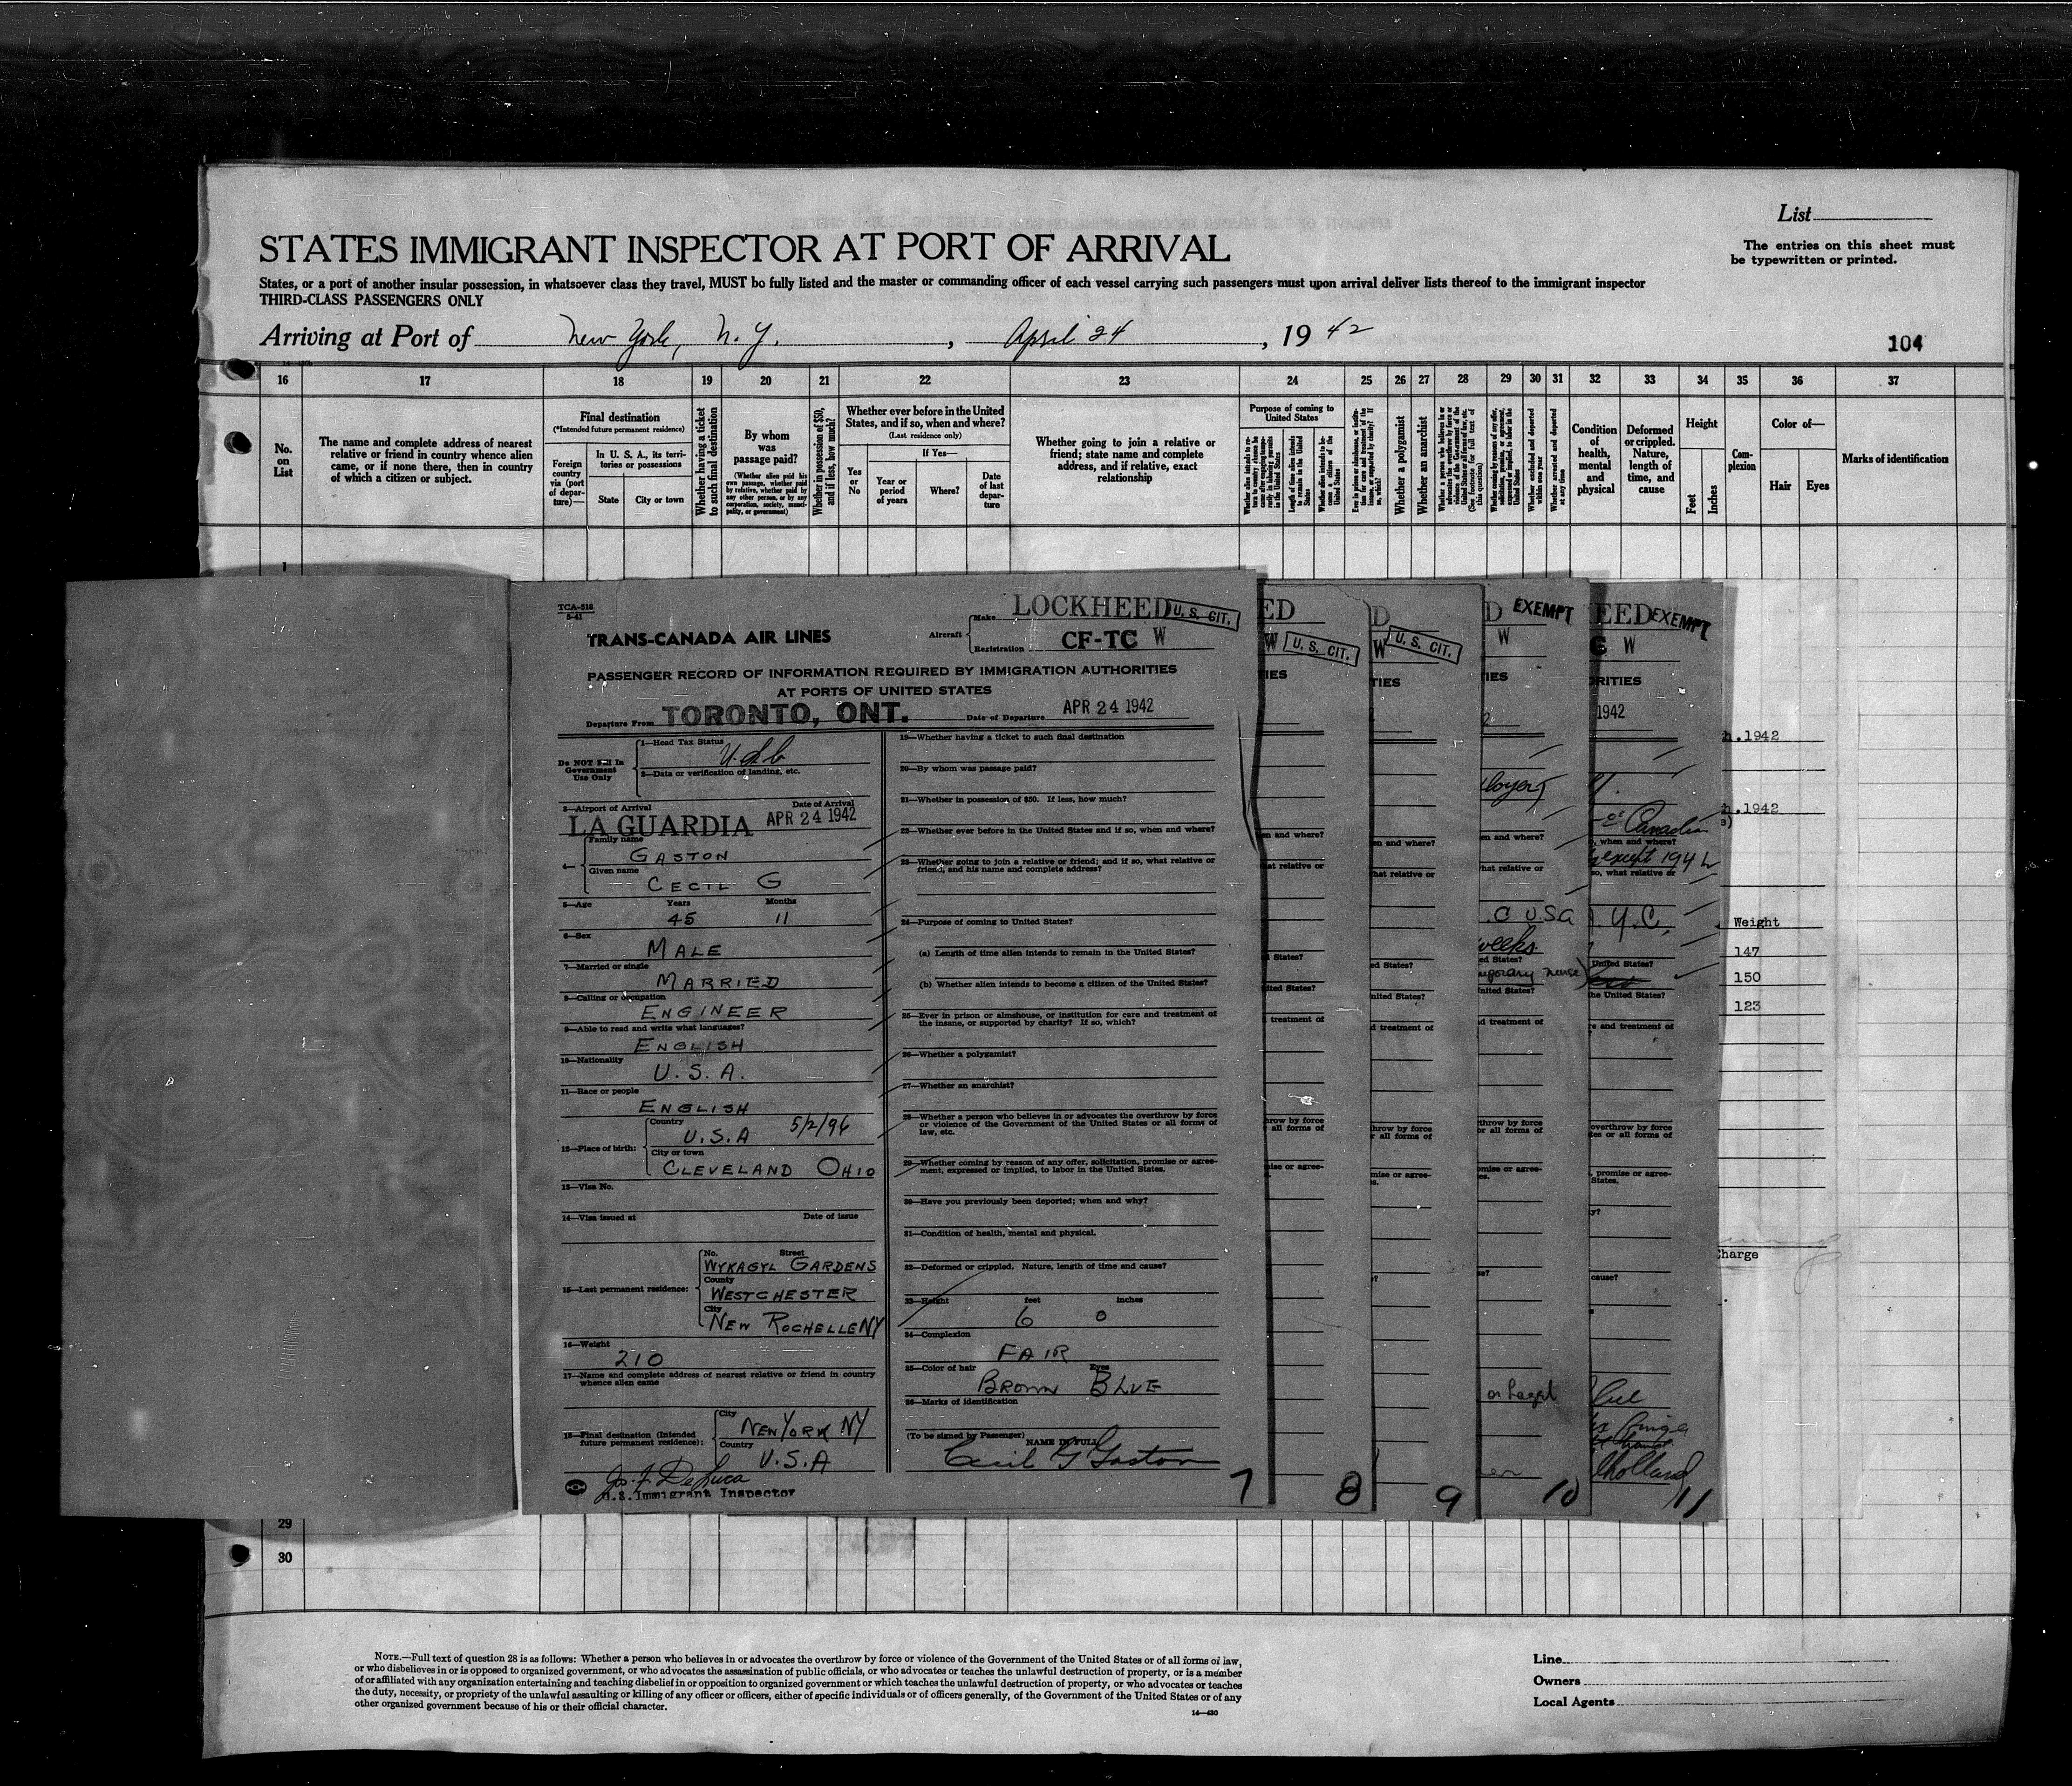 List
STATES IMMIGRANT INSPECTOR AT PORT OF ARRIVAL
The entries on this sheet must
be typewritten or printed.
States, or a port of another insular possession, in whatsoever class they travel, MUST be fully listed and the master or commanding officer of each vessel carrying such passengers must upon arrival deliver lists thereof to the immigrant inspector
THIRD-CLASS PASSENGERS ONLY
Arriving at Port of New York, N.Y., April 24, 1942
104
16 17 18 19 20 21 22 23 24 25 26 27 28 29 30 31 32 33 34 35 36 37
No.
on
List
The name and complete address of nearest
relative or friend in country whence alien
came, or if none there, then in country
of which a citizen or subject.
Final destination
(*Intended future permanent residence)
Foreign
country
via (port
of depar-
ture)—
In U. S. A., its terri-
tories or possessions
State
City or town
Whether having a ticket
to such final destination
By whom
was
passage paid?
(Whether alien paid his
own passage, whether paid
by relative, whether paid
by any other person, or by any
corporation, society, munici-
pality, or government)
Whether in possession of $50,
and if less, how much?
Whether ever before in the United
States, and if so, when and where?
(Last residence only)
Yes
or
No
If Yes—
Year or
period
of years
Where?
Date
of last
depar-
ture
Whether going to join a relative or
friend; state name and complete
address, and if relative, exact
relationship
Purpose of coming to
United States
Length of time alien intends
to remain in the United
States
Whether alien intends to be-
come a citizen of the
United States
Whether a polygamist
Whether an anarchist
Whether excluded and deported
within one year
Whether arrested and deported
at any time
Condition
of
health,
mental
and
physical
Deformed
or crippled.
Nature,
length of
time, and
cause
Height
Feet
Inches
Com-
plexion
Color of—
Hair
Eyes
Marks of identification
1
TCA-518
5-41
TRANS-CANADA AIR LINES
Aircraft
Make LOCKHEED
U. S. CIT.
Registration CF-TC W
PASSENGER RECORD OF INFORMATION REQUIRED BY IMMIGRATION AUTHORITIES
AT PORTS OF UNITED STATES
Departure From TORONTO, ONT. Date of Departure APR 24 1942
Do NOT Fill In
Government
Use Only
1—Head Tax Status
2—Data or verification of landing, etc.
3—Airport of Arrival Date of Arrival
LA GUARDIA APR 24 1942
Family name
GASTON
Given name
CECIL G
5—Age Years Months
45 11
6—Sex
MALE
7—Married or single
MARRIED
8—Calling or occupation
ENGINEER
9—Able to read and write what languages?
ENGLISH
10—Nationality
U.S.A.
11—Race or people
ENGLISH
12—Place of birth:
Country
U.S.A 5/2/96
City or town
CLEVELAND OHIO
13—Visa No.
14—Visa issued at Date of issue
15—Last permanent residence:
No. Street
WYKAGYL GARDENS
County
WESTCHESTER
City
NEW ROCHELLE NY
16—Weight
210
17—Name and complete address of nearest relative or friend in country
whence alien came
18—Final destination (Intended
future permanent residence):
City
NEW YORK NY
Country
U.S.A
Jos. F. DeLuca
U.S. Immigrant Inspector
19—Whether having a ticket to such final destination
20—By whom was passage paid?
21—Whether in possession of $50. If less, how much?
22—Whether ever before in the United States and if so, when and where?
23—Whether going to join a relative or friend; and if so, what relative or
friend, and his name and complete address?
24—Purpose of coming to United States?
(a) Length of time alien intends to remain in the United States?
(b) Whether alien intends to become a citizen of the United States?
25—Ever in prison or almshouse, or institution for care and treatment of
the insane, or supported by charity? If so, which?
26—Whether a polygamist?
27—Whether an anarchist?
28—Whether a person who believes in or advocates the overthrow by force
or violence of the Government of the United States or all forms of
law, etc.
29—Whether coming by reason of any offer, solicitation, promise or agree-
ment, expressed or implied, to labor in the United States.
30—Have you previously been deported; when and why?
31—Condition of health, mental and physical.
32—Deformed or crippled. Nature, length of time and cause?
33—Height feet inches
6 0
34—Complexion
FAIR
35—Color of hair Eyes
BROWN BLUE
36—Marks of identification
(To be signed by Passenger) NAME IN FULL
Cecil G Gaston
7
ED
W U. S. CIT.
IES
en and where?
at relative or
d States?
ited States?
d treatment of
hrow by force
all forms of
mise or agree-
8
D
W U. S. CIT.
TIES
en and where?
hat relative or
ed States?
nited States?
d treatment of
throw by force
r all forms of
mise or agree-
s.
9
D EXEMPT
W
IES
loyer)
en and where?
what relative or
C USA
weeks
ed States?
nurse)
nited States?
d treatment of
throw by force
or all forms of
omise or agree-
es.
10
EED EXEMPT
G W
ORITIES
1942
Canadian
, when and where?
except 1942
so, what relative or
Y.C.
United States?
the United States?
re and treatment of
overthrow by force
tes or all forms of
, promise or agree-
States.
y?
cause?
holland
11
h.1942
h.1942
Weight
147
150
123
Charge
29
30
NOTE.—Full text of question 28 is as follows: Whether a person who believes in or advocates the overthrow by force or violence of the Government of the United States or of all forms of law,
or who disbelieves in or is opposed to organized government, or who advocates the assassination of public officials, or who advocates or teaches the unlawful destruction of property, or is a member
of or affiliated with any organization entertaining and teaching disbelief in or opposition to organized government or which teaches the unlawful destruction of property, or who advocates or teaches
the duty, necessity, or propriety of the unlawful assaulting or killing of any officer or officers, either of specific individuals or of officers generally, of the Government of the United States or of any
other organized government because of his or their official character.
14—430
Line
Owners
Local Agents